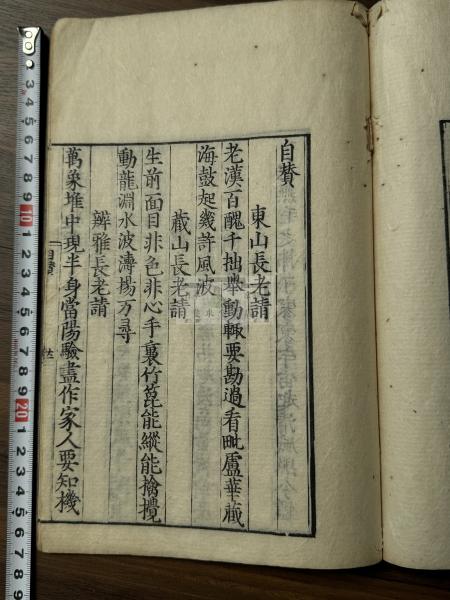 自賛
東山長老請
老漢百醜千拙舉動輒要勘過看毗盧華藏
海鼓起幾許風波
蕺山長老請
生前面目非色非心手裏竹篦能縱能擒攪
動龍淵水波濤揚万尋
辨雅長老請
萬象堆中現半身當陽驗盡作家人要知機
自賛